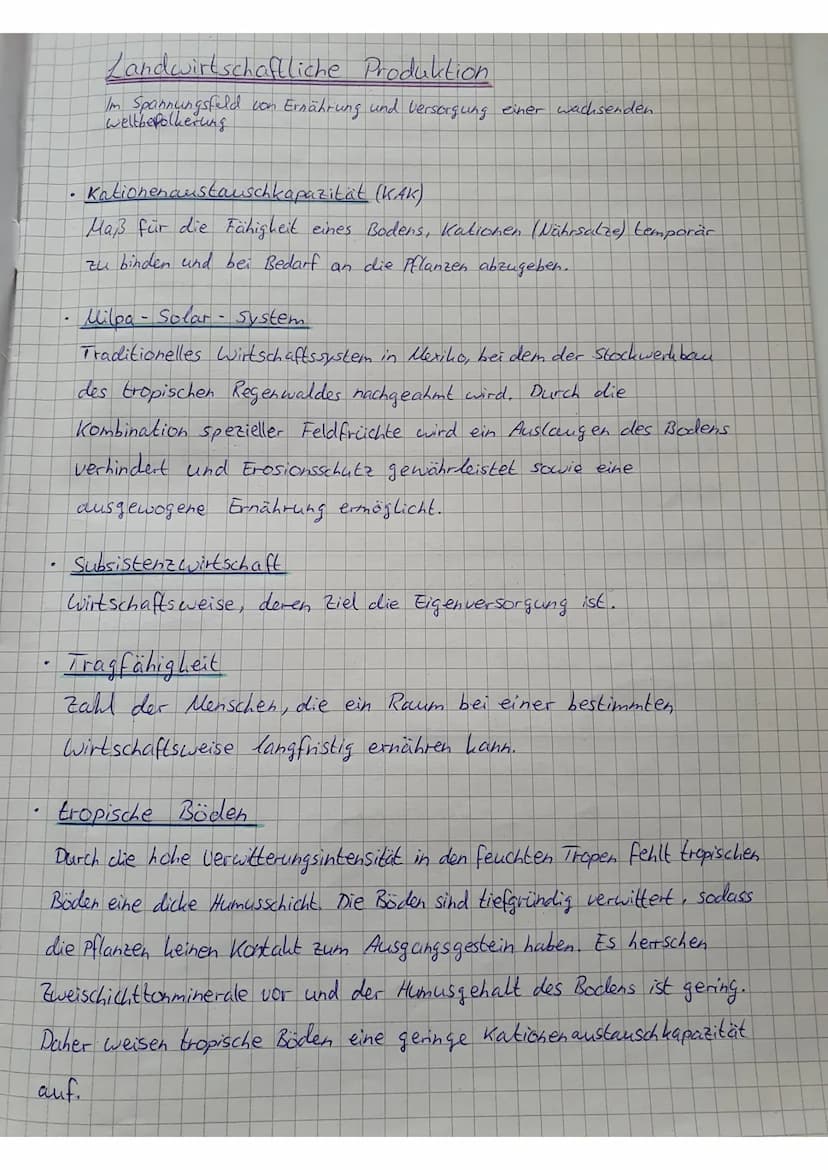 Landwirtschaftliche Produktion
Im Spannungsfeld von Ernährung und Versorgung einer wachsenden
weltbefolkerung
• Kationenaustauschkapazität (KAK)
Maß für die Fähigkeit eines Bodens, Kationen (Nährsalze) temporär
zu binden und bei Bedarf an die Pflanzen abzugeben.
• Milpa-Solar-System
Traditionelles Wirtschaftssystem in Mexiko, bei dem der Stockwerkbau
des tropischen Regenwaldes nachgeahmt wird. Durch die
Kombination spezieller Feldfrüchte wird ein Auslaugen des Bodens
verhindert und Erosionsschutz gewährleistet sowie eine
ausgewogene Ernährung ermöglicht.
• Subsistenzwirtschaft
Wirtschaftsweise, deren Ziel die Eigenversorgung ist.
• Tragfähigkeit
Zahl der Menschen, die ein Raum bei einer bestimmten
Wirtschaftsweise langfristig ernähren kann.
• tropische Böden
Durch die hohe Verwitterungsintensität in den feuchten Tropen fehlt tropischen
Böden eine dicke Humusschicht. Die Böden sind tiefgründig verwittert, sodass
die Pflanzen keinen Kontakt zum Ausgangsgestein haben. Es herrschen
Zweischichttonminerale vor und der Humusgehalt des Bodens ist gering.
Daher weisen tropische Böden eine geringe Kationenaustauschkapazität
auf.